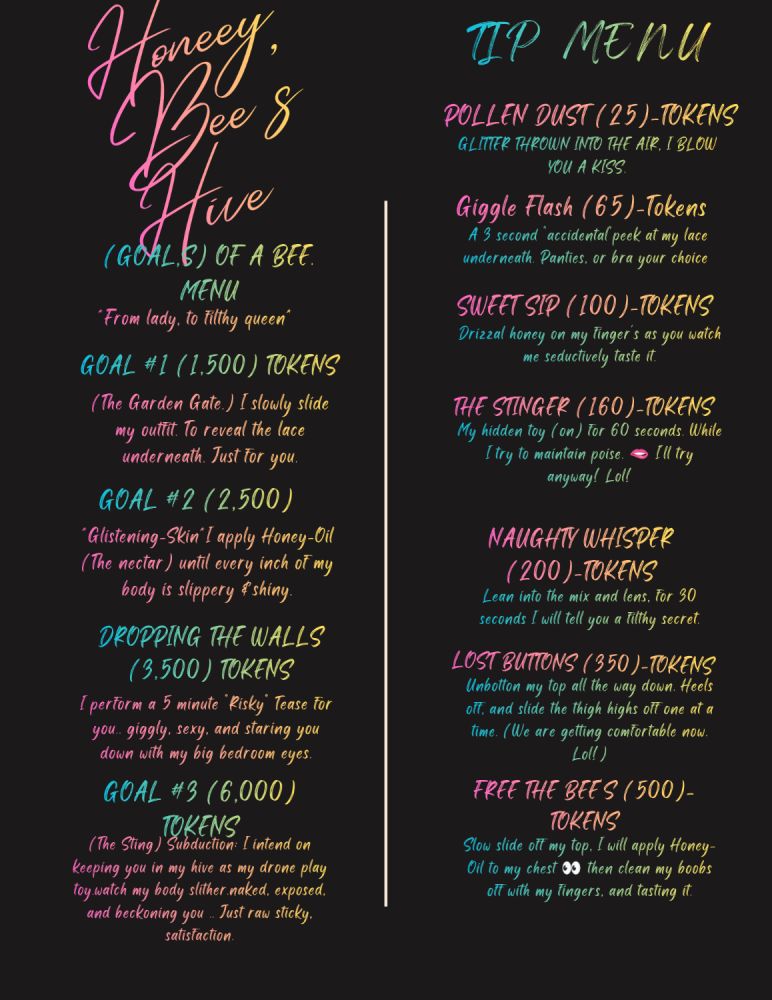 Honeey,
Bee's
Hive
(GOAL,S) OF A BEE.
MENU
"From lady, to filthy queen"
GOAL #1 (1,500) TOKENS
(The Garden Gate.) I slowly slide
my outfit. To reveal the lace
underneath. Just for you.
GOAL #2 (2,500)
"Glistening-Skin" I apply Honey-Oil
(The nectar) until every inch of my
body is slippery & shiny.
DROPPING THE WALLS
(3,500) TOKENS
I perform a 5 minute "Risky" Tease for
you.. giggly, sexy, and staring you
down with my big bedroom eyes.
GOAL #3 (6,000)
TOKENS
(The Sting) Subduction: I intend on
keeping you in my hive as my drone play
toy.watch my body slither.naked, exposed,
and beckoning you .. Just raw sticky,
satisfaction.
TIP MENU
POLLEN DUST (25)-TOKENS
GLITTER THROWN INTO THE AIR, I BLOW
YOU A KISS.
Giggle Flash (65)-Tokens
A 3 second "accidental" peek at my lace
underneath. Panties, or bra your choice
SWEET SIP (100)-TOKENS
Drizzal honey on my finger's as you watch
me seductively taste it.
THE STINGER (160)-TOKENS
My hidden toy (on) for 60 seconds. While
I try to maintain poise. 🫦 I'll try
anyway! Lol!
NAUGHTY WHISPER
(200)-TOKENS
Lean into the mix and lens, for 30
seconds I will tell you a filthy secret.
LOST BUTTONS (350)-TOKENS
Unbotton my top all the way down. Heels
off, and slide the thigh highs off one at a
time. (We are getting comfortable now.
Lol! )
FREE THE BEE'S (500)-
TOKENS
Slow slide off my top, I will apply Honey-
Oil to my chest 👀 then clean my boobs
off with my fingers, and tasting it.